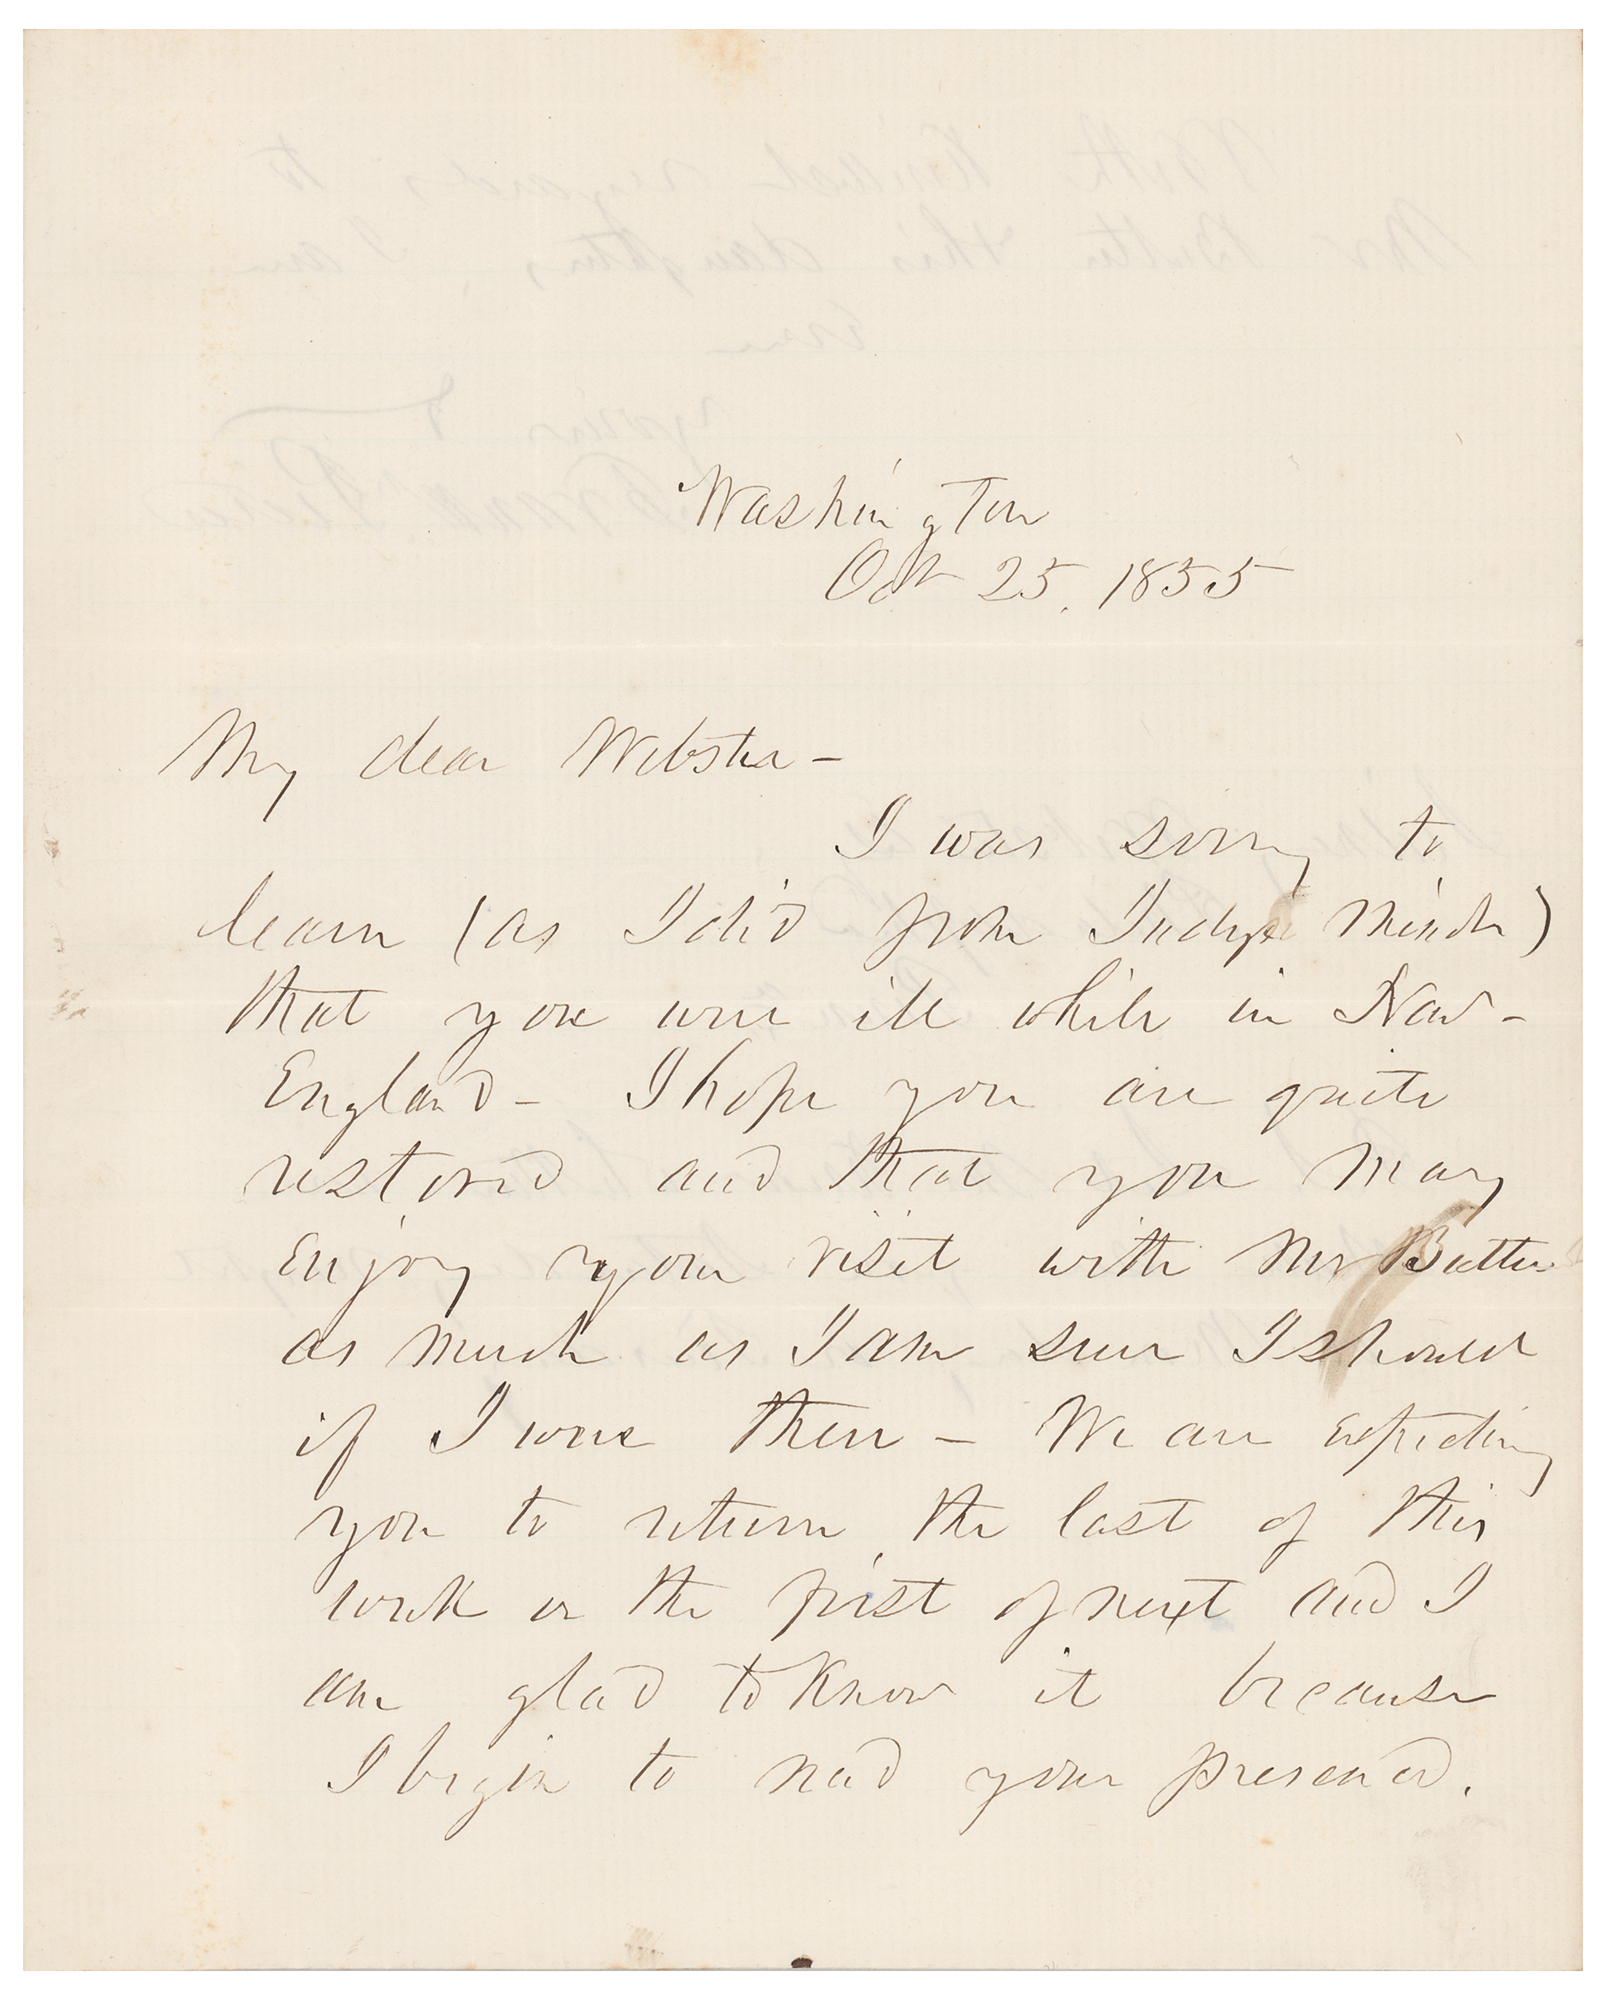 Washington
Oct 25, 1855
My dear Webster –
I was sorry to
learn (as I did from Judge Minot)
that you were ill while in New-
England – I hope you are quite
restored and that you may
enjoy your visit with Mr Butler
as much as I am sure I should
if I were there – We are expecting
you to return the last of this
week or the first of next and I
am glad to know it because
I begin to need your presence.